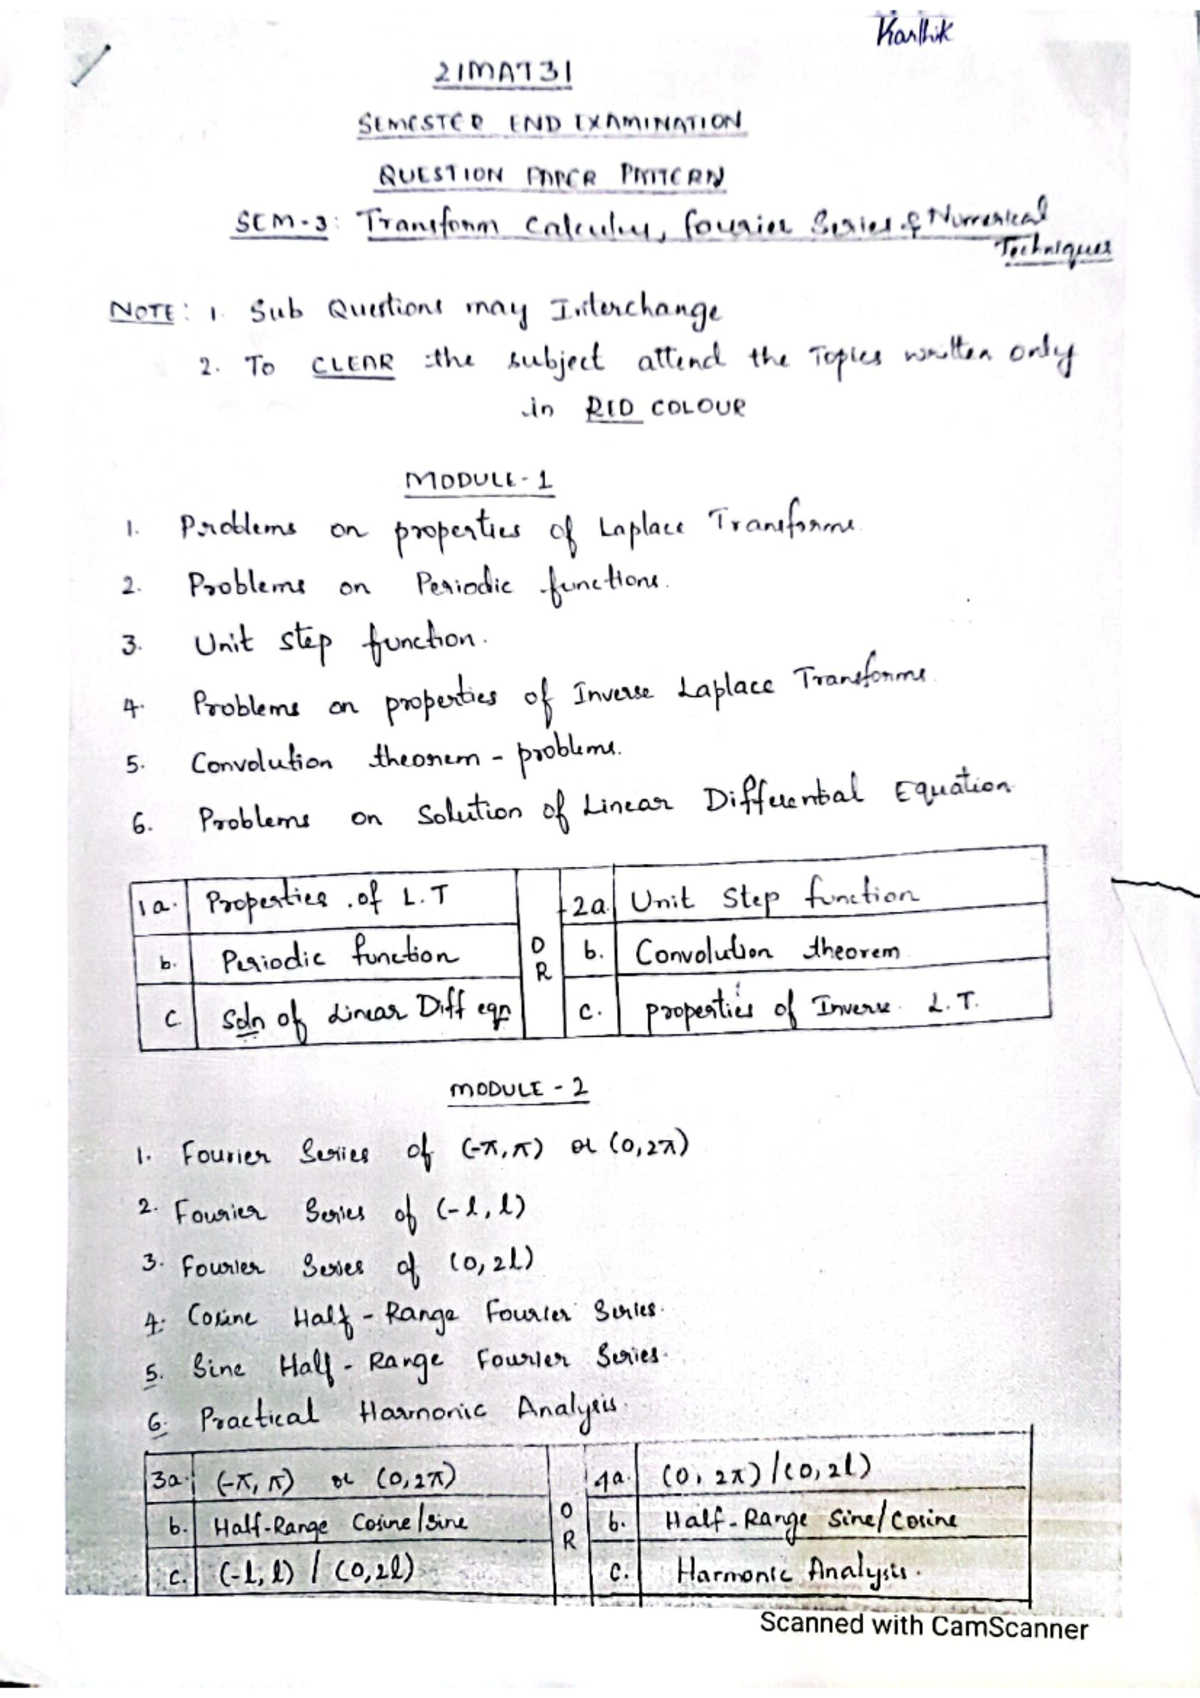 Karthik
21MAT31
SEMESTER END EXAMINATION
QUESTION PAPER PATTERN
SEM-3: Transform Calculus, Fourier Series & Numerical
Techniques
NOTE: 1. Sub Questions may Interchange
2. To CLEAR the subject attend the Topics written only
in RED COLOUR
MODULE-1
1. Problems on properties of Laplace Transforms.
2. Problems on Periodic functions.
3. Unit step function.
4. Problems on properties of Inverse Laplace Transforms.
5. Convolution theorem - problems.
6. Problems on Solution of Linear Differential Equation.
1a. Properties of L.T OR 2a. Unit Step function
b. Periodic function b. Convolution theorem.
c. Soln of Linear Diff eqn c. properties of Inverse L.T.
MODULE - 2
1. Fourier Series of (-π, π) or (0, 2π)
2. Fourier Series of (-l, l)
3. Fourier Series of (0, 2l)
4. Cosine Half-Range Fourier Series.
5. Sine Half-Range Fourier Series.
6. Practical Harmonic Analysis.
3a. (-π, π) or (0, 2π) OR 4a. (0, 2π) / (0, 2l)
b. Half-Range Cosine/Sine b. Half-Range Sine/Cosine
c. (-l, l) / (0, 2l) c. Harmonic Analysis.
Scanned with CamScanner